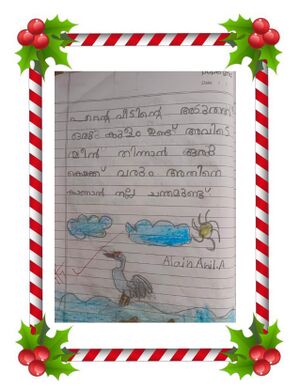 എന്റെ വീടിന്റെ അടുത്ത്
ഒരു കുളം ഉണ്ട് അവിടെ
മീൻ തിന്നാൻ ഒരു
കൊക്ക് വരും അതിനെ
കാണാൻ നല്ല ചന്തമുണ്ട്
Alain Anil.A